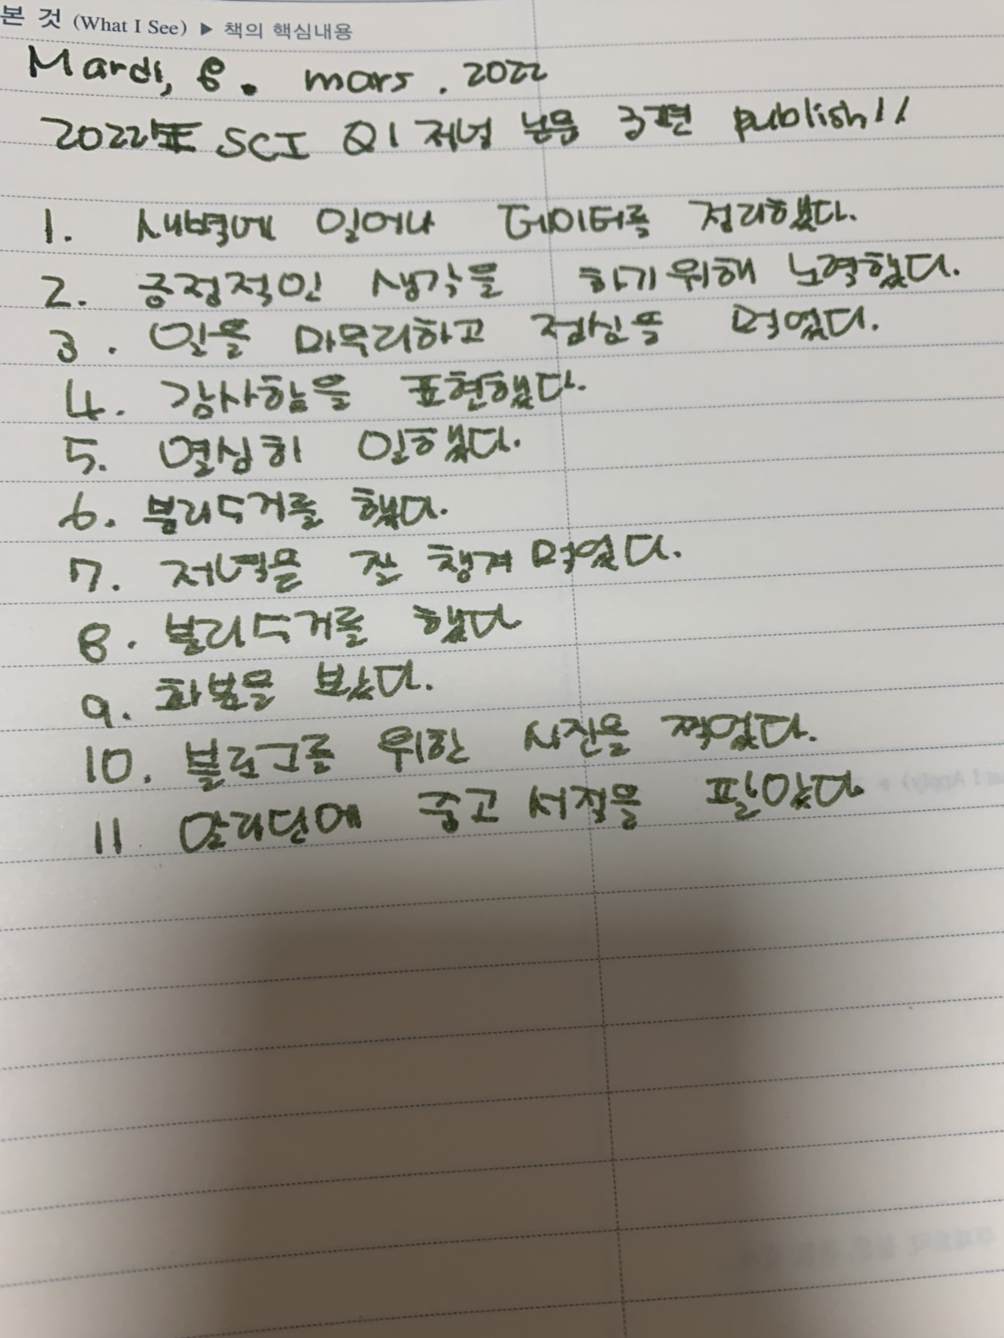 본 것 (What I See) ▶ 책의 핵심내용
Mardi, 8. mars. 2022
2022年 SCI Q1 저널 논문 3편 publish!!
1. 새벽에 일어나 데이터를 정리했다.
2. 긍정적인 생각을 하기 위해 노력했다.
3. 일을 마무리하고 점심을 먹었다.
4. 감사함을 표현했다.
5. 열심히 일했다.
6. 분리수거를 했다.
7. 저녁을 잘 챙겨 먹었다.
8. 분리수거를 했다
9. 화분을 봤다.
10. 블로그를 위한 사진을 찍었다.
11 알라딘에 중고 서적을 팔았다